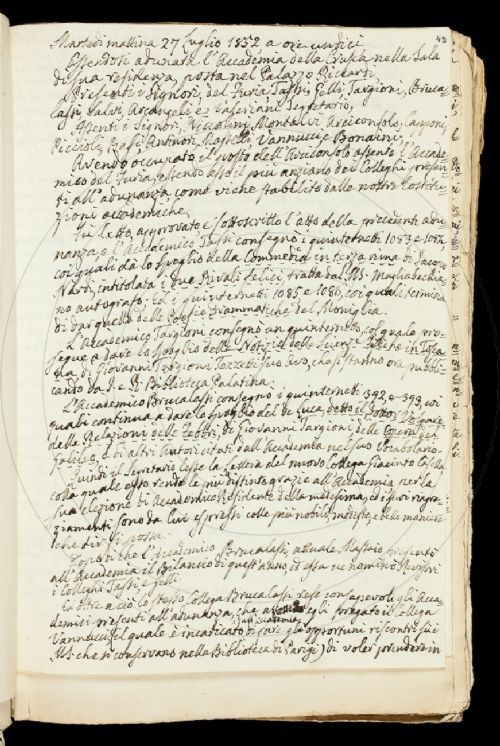 43
Martedì mattina 27 Luglio 1852 a ore undici
Essendosi adunata l'Accademia della Crusca nella Sala
di sua residenza, posta nel Palazzo Riccardi,
Presenti i Signori, del Furia, Tassi, Gelli, Targioni, Bruca=
lassi, Salvi, Arcangeli e Valeriani Segretario,
Assenti i Signori, Niccolini, Montalvi Arciconsolo, Capponi,
Becchi, Antinori, Mastella, Vannucci e Bonaini,
Avendo occupato il posto dell'Arciconsolo assente l'Accade=
mico del Furia, essendo esso il più anziano dei Colleghi presen=
ti all'adunanza, come viene stabilito dalle nostre Costitu=
zioni accademiche,
Fu letto, approvato e sottoscritto l'atto della precedente adu=
nanza, e l'Accademico Tassi consegnò i quinternetti 1083 e 1084
coi quali dà lo spoglio della Commedia in terza rima di Jacopo
Nardi, intitolata i due Rivali felici, tratta dal MS. Magliabechia
no autografo: ed i quinternetti 1085 e 1086, coi quali termina
di dar quello delle Poesie drammatiche del Moniglia.
L'Accademico Targioni consegnò un quinternetto, col quale pro=
segue a dare lo spoglio delle Notizie delle Scienze Fisiche in Tosca
na, di Giovanni Targioni Tozzetti suo Avo, che si stanno ora pubbli
cando da I. e R. Biblioteca Palatina.
L'Accademico Brucalassi consegnò i quinternetti 392 e 393, coi
quali continua a dare lo spoglio del De Luca, detto il Dottor Volgare
delle Relazioni delle Febbri, di Giovanni Targioni, delle Opere per
Galileo, e di altri Autori citati dall'Accademia nel suo Vocabolario.
Quindi il Segretario lesse la Lettera del nuovo Collega Giacinto Casella
colla quale esso rende le più distinte grazie all'Accademia per la
sua elezione di Accademico residente della medesima, ed i suoi ringra=
ziamenti sono da lui espressi colle più nobili, modeste, e belle maniere
che dir si possa.
Dopo di che l'Accademico Brucalassi, attuale Massaio, presentò
all'Accademia il Bilancio di quest'anno, ed essa ne nominò Revisori
i Colleghi Tassi e Gelli.
In oltre a ciò lo stesso Collega Brucalassi rese consapevoli gli Acca=
demici presenti all'adunanza, che egli pregato il Collega
Vannucci (il quale è incaricato di fare gli opportuni riscontri sui
MS. che si conservano nella Biblioteca di Parigi) di voler prendere in